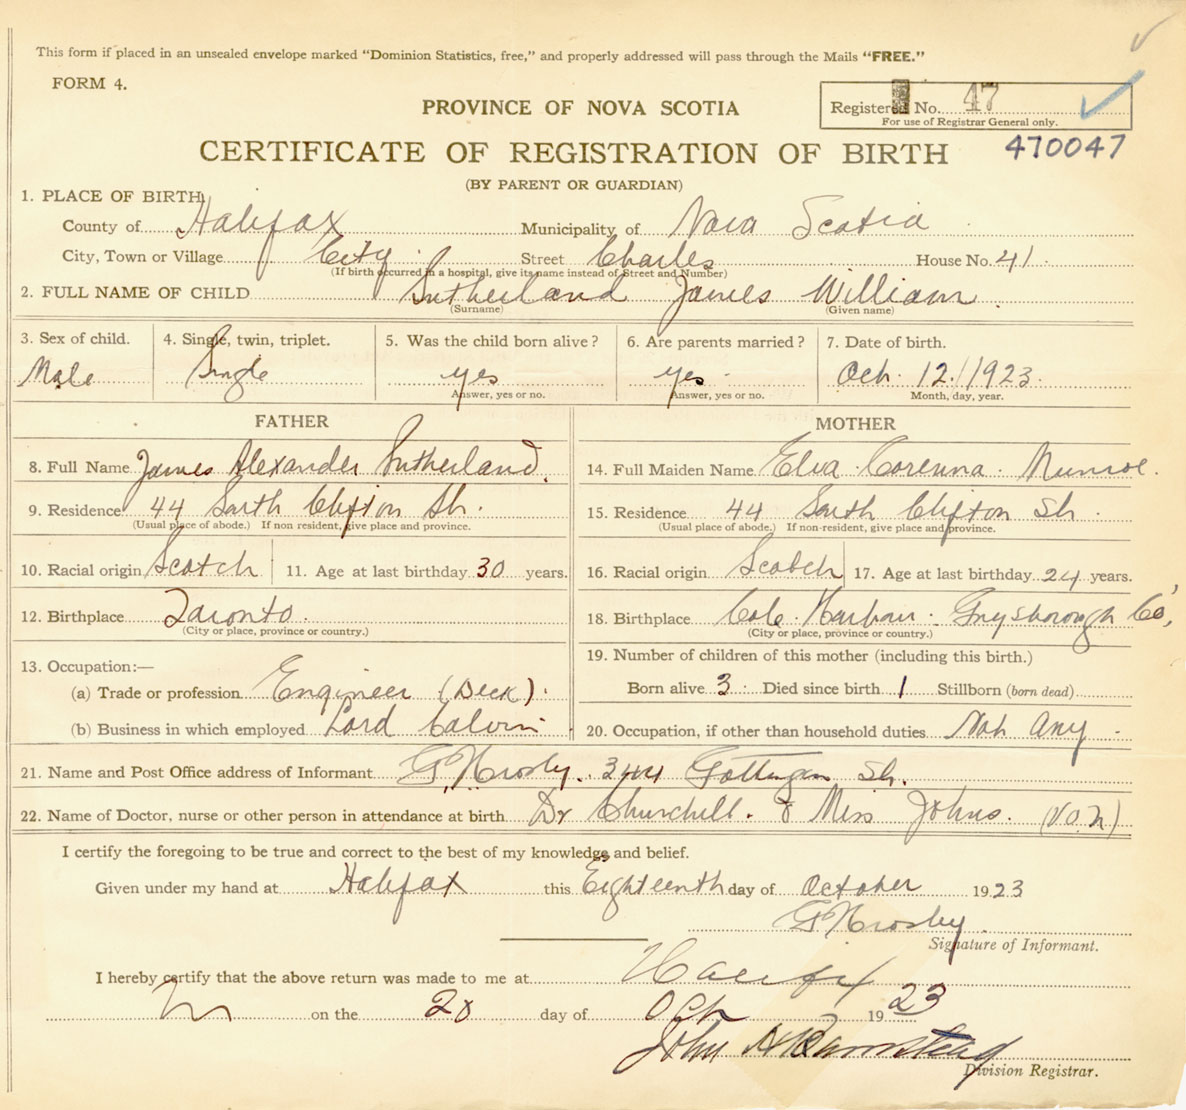 This form if placed in an unsealed envelope marked "Dominion Statistics, free," and properly addressed will pass through the Mails "FREE."
FORM 4.
PROVINCE OF NOVA SCOTIA
Registered No. 47
For use of Registrar General only.
CERTIFICATE OF REGISTRATION OF BIRTH
470047
(BY PARENT OR GUARDIAN)
1. PLACE OF BIRTH
County of Halifax Municipality of Nova Scotia
City, Town or Village City Street Charles House No. 41
(If birth occurred in a hospital, give its name instead of Street and Number)
2. FULL NAME OF CHILD Sutherland James William
(Surname) (Given name)
3. Sex of child. 4. Single, twin, triplet. 5. Was the child born alive? 6. Are parents married? 7. Date of birth.
Male Single yes yes Oct. 12. 1923.
Answer, yes or no. Answer, yes or no. Month, day, year.
FATHER MOTHER
8. Full Name James Alexander Sutherland. 14. Full Maiden Name Elva Corenna Munroe.
9. Residence 44 South Clifton St. 15. Residence 44 South Clifton St.
(Usual place of abode.) If non resident, give place and province. (Usual place of abode.) If non-resident, give place and province.
10. Racial origin Scotch 11. Age at last birthday 30 years. 16. Racial origin Scotch 17. Age at last birthday 24 years.
12. Birthplace Toronto. 18. Birthplace Cole Harbour Guysborough Co,
(City or place, province or country.) (City or place, province or country.)
13. Occupation:— 19. Number of children of this mother (including this birth.)
(a) Trade or profession Engineer (Deck). Born alive 3 Died since birth 1 Stillborn (born dead)
(b) Business in which employed Lord Calvin 20. Occupation, if other than household duties Not Any
21. Name and Post Office address of Informant Crosby. 344 Gottingen St.
22. Name of Doctor, nurse or other person in attendance at birth Dr Churchill. & Miss Johns. (V.O.N)
I certify the foregoing to be true and correct to the best of my knowledge and belief.
Given under my hand at Halifax this Eighteenth day of October 1923
Crosby
Signature of Informant.
I hereby certify that the above return was made to me at Halifax
on the 20 day of Oct 1923
John
Division Registrar.